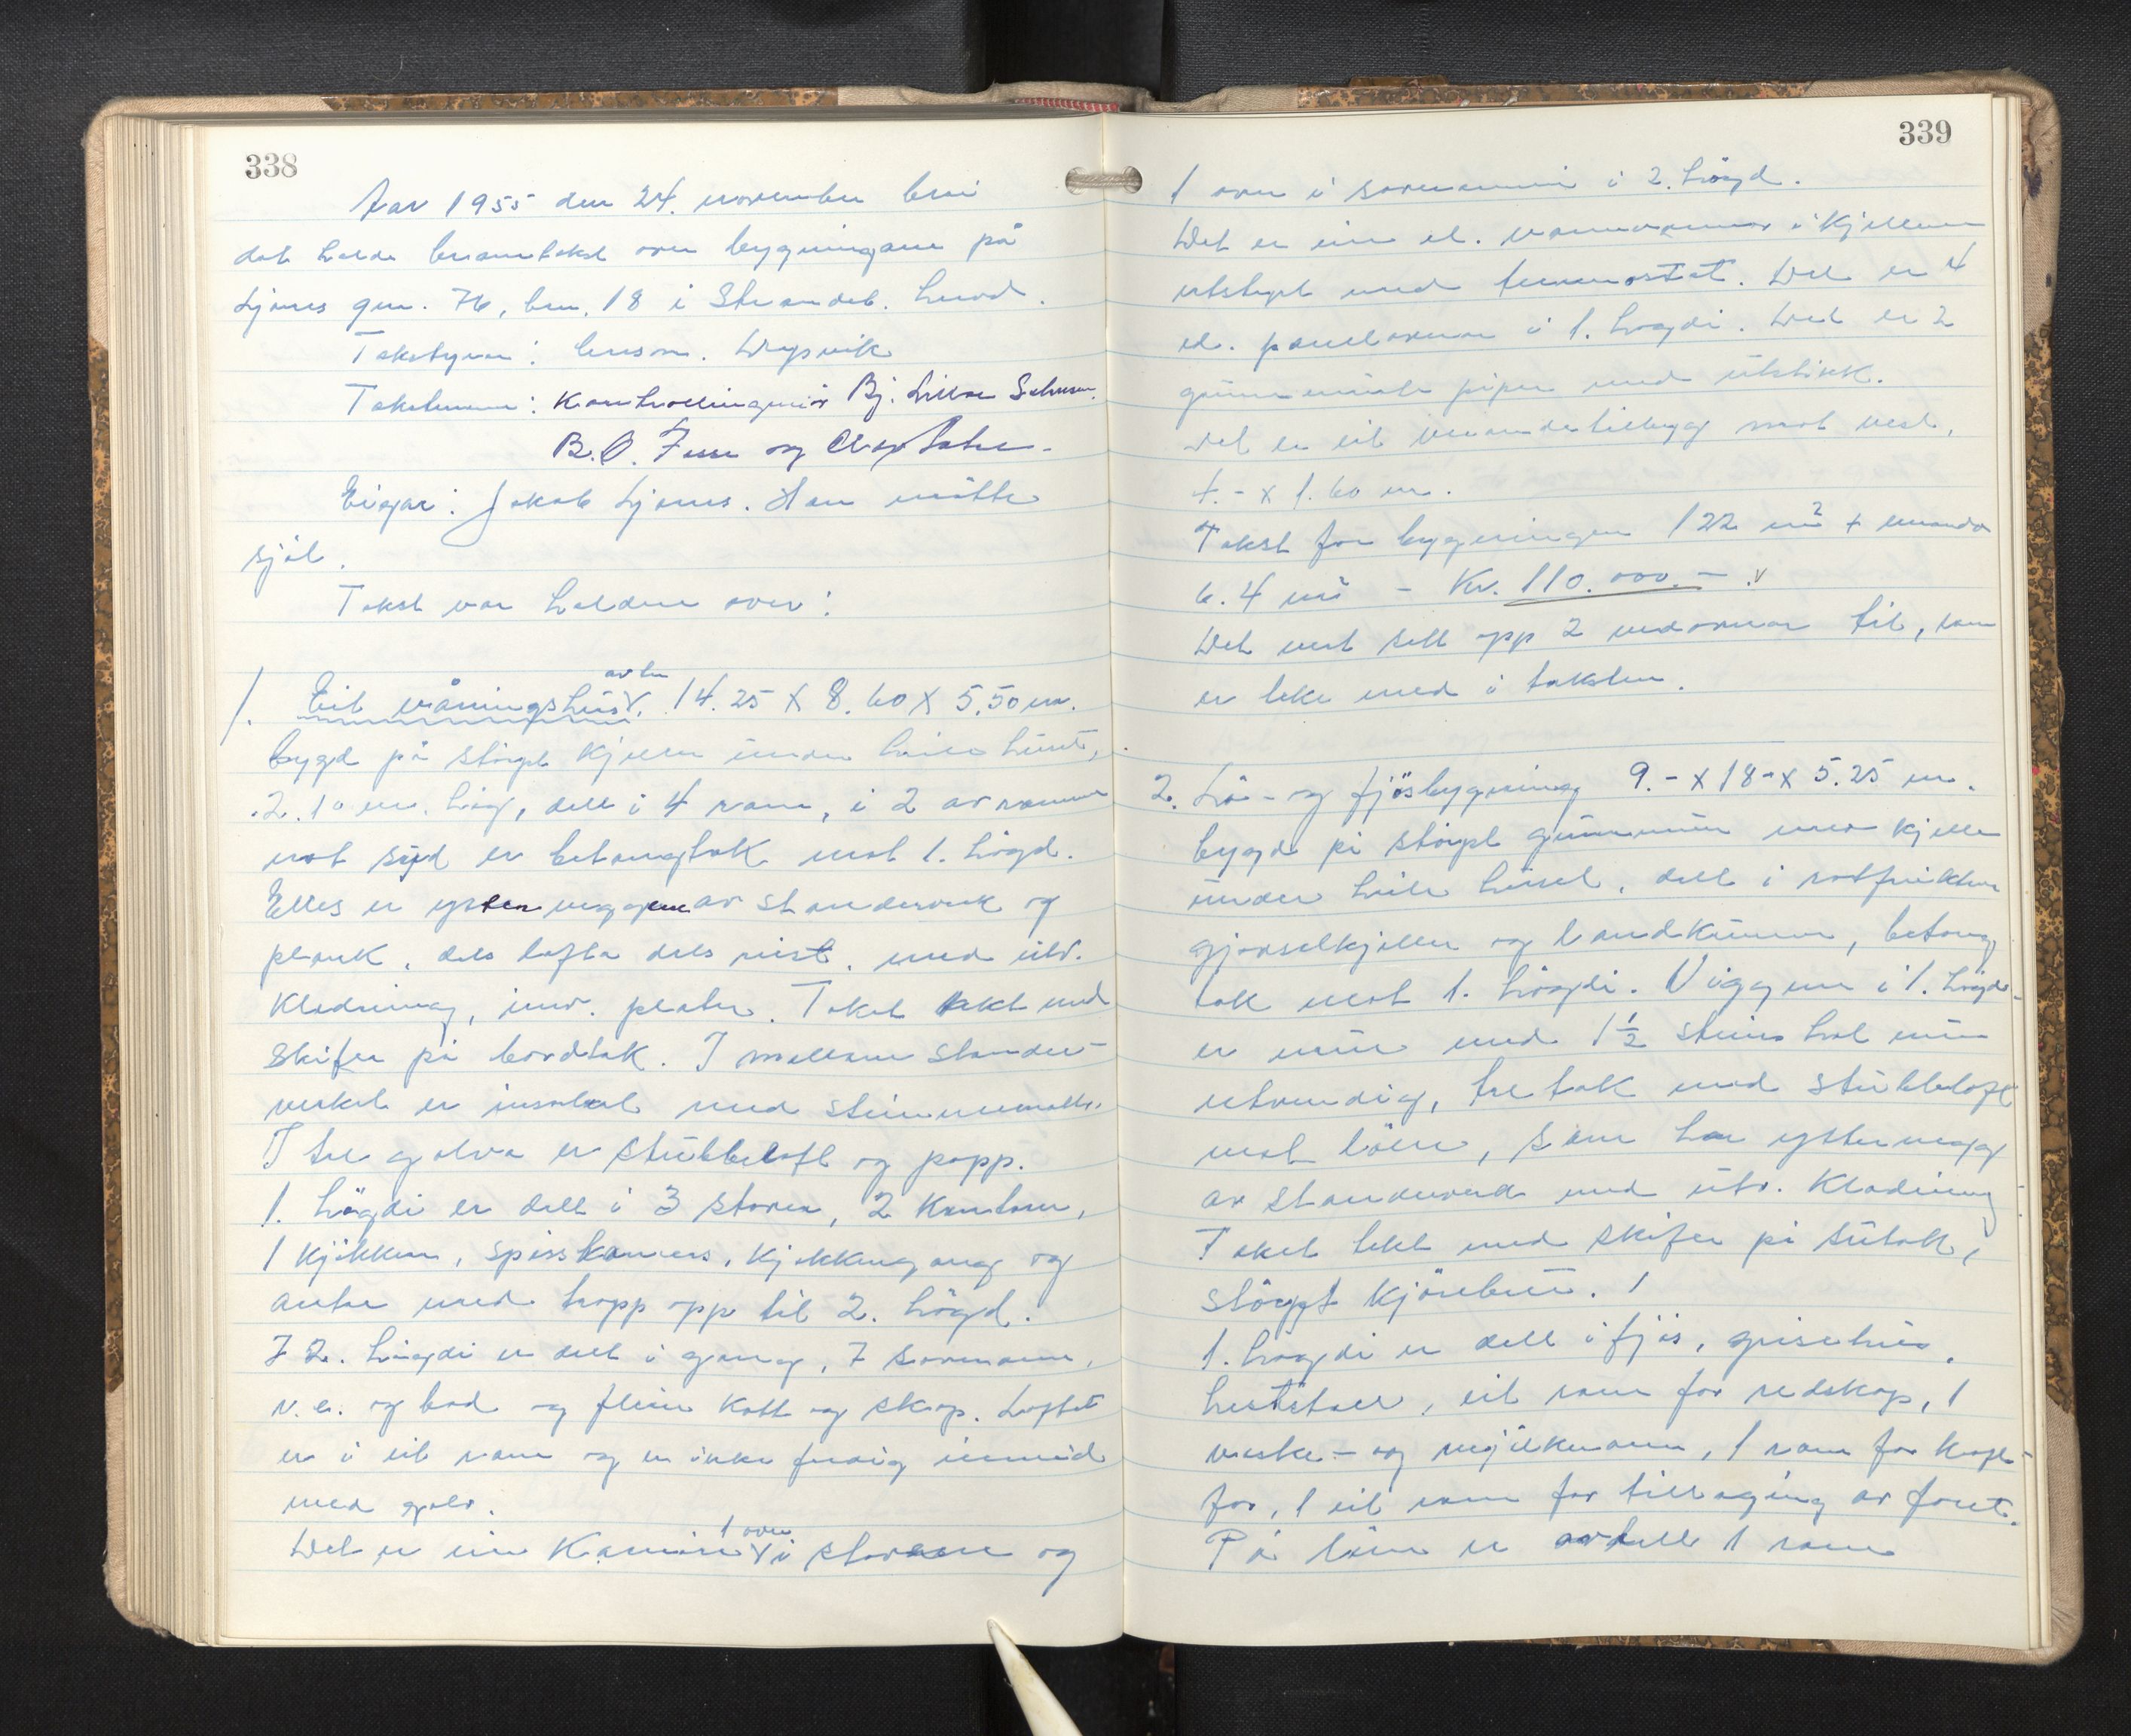 338
Aar 1955 den 24. november blei
det halde branntakst over bygningane på
Ljones gnr. 76, bnr. 18 i Strandeb. herad.
Takstyrar: lensm. Dysvik
Takstmenn: Kontrollingeniør Bj. Lillве
B. O. Fosse og
Eigar: Jakob Ljones. Han møtte
sjøl.
Takst var halden over:
av tre
1. Eit våningshus 14.25 X 8.60 X 5.50 m.
bygd på støypt kjellar under heile huset,
2.10 m. høg, delt i 4 rom, i 2 av romma
mot syd er betongtak mot 1. høgd.
Elles er ytterveggene av standerverk og
plank, dels lafta dels reist, med utv.
kledning, innv. plater. Taket tekt med
skifer på bordtak. I mellom stander-
verket er insolert med steinullmatter.
I tre golva er stubbeloft og papp.
1. høgdi er delt i 3 stover, 2 kontor,
1 kjøkken, spisskammers, kjøkkengang og
antre med tropp opp til 2. høgd.
I 2. høgdi er delt i gang, 7 soverom,
v.c. og bad og fleire kott og skap. Loftet
er i eit rom og er ikkje ferdig innreid
med golv.
1 ovn
Det er ein Kamin i stovene og
339
1 ovn i soverommi i 2. høgd.
Det er ein el. varmeomnar i kjellaren
utstyrt med termostat. Det er 4
el. panelomnar i 1. høgdi. Det er 2
gjennommurte piper med utstikk.
Det er eit verandatilbygg mot vest,
4.- x 1.60 m.
Takst for bygningen 122 m² + veranda
6.4 m² - Kr. 110.000.-
Det vert sett opp 2 vedomnar til, som
er teke med i taksten.
2. Lø- og fjøsbygning 9.- x 18.- x 5.25 m.
bygd på støypt grunnmur med kjellar
under heile huset, delt i rotfrukter
gjødselkjellar og landkummar, betong
tak mot 1. høgdi. Veggene i 1. høgdi
er mur med 1½ steins hol mur
utvendig, tre tak med stubbeloft
mot løen, som har yttervegg
av standerverk med utv. kledning
Taket tekt med skifer på sutak,
støypt kjørebru. 1
1. høgdi er delt i fjøs, grisehus,
heststall, eit rom for redskap, 1
vaske- og mjølkerom, 1 rom for kraft-
for, 1 eit rom for tillaging av foret.
På løen er avdelt 1 rom